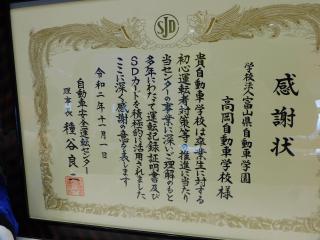 SJD
感謝状
学校法人富山県自動車学園
高岡自動車学校様
貴自動車学校は卒業生に対する
初心運転者対策等の推進に当たり
当センターの事業に深いご理解のもと
多年にわたって運転記録証明書及び
SDカードを積極的に活用されました
ここに深く感謝の意を表します
令和二年十一月一日
自動車安全運転センター
理事長 種谷良二